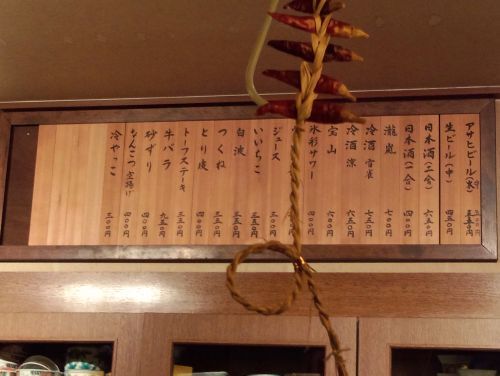 アサヒビール(大)
中 五〇〇円
五五〇円
生ビール(中)
四五〇円
日本酒(二合)
六五〇円
日本酒(一合)
四〇〇円
瀧庭
七〇〇円
冷酒 雪雀
七五〇円
冷酒 凉
六五〇円
宝山
六〇〇円
氷彩サワー
四〇〇円
ジュース
三〇〇円
いいちこ
三五〇円
白波
三五〇円
つくね
三五〇円
とり皮
四〇〇円
トーフステーキ
三五〇円
牛バラ
九五〇円
砂ずり
四〇〇円
なんこつ 空揚げ
四〇〇円
冷やっこ
三〇〇円